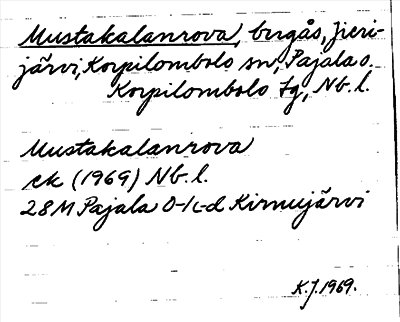 Mustakalanrova, bergås, Jieri-
järvi, Korpilombolo sn, Pajala o.
Korpilombolo tg, Nb. l.
Mustakalanrova
ek (1969) Nb. l.
28M Pajala 0-1c-d Kirnujärvi
K.J. 1969.